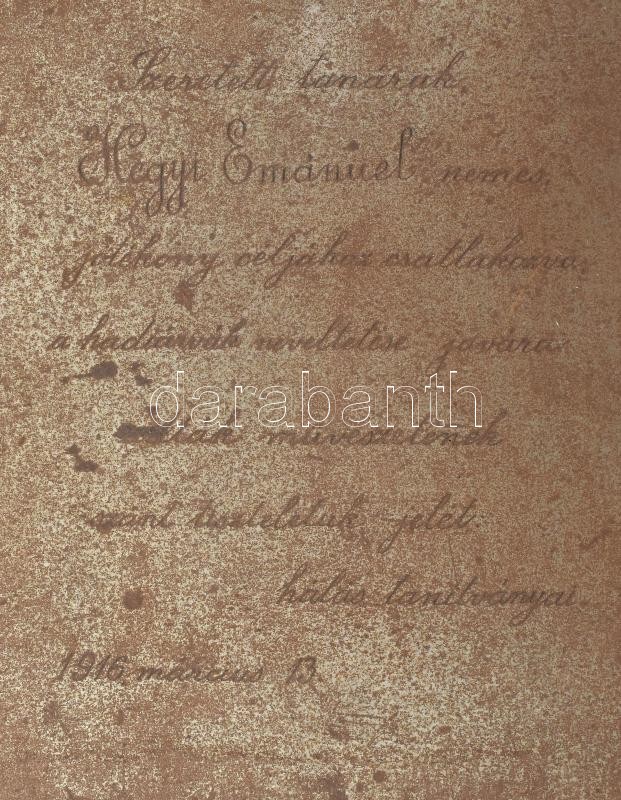 Szeretett tanáruk
Hegyi Emánuel nemes,
jótékony céljához csatlakozva,
a hadiárvák neveltetése javára
darabanth
művészetének
szánt tiszteletük jelét.
hálás tanítványai.
1916 március 13